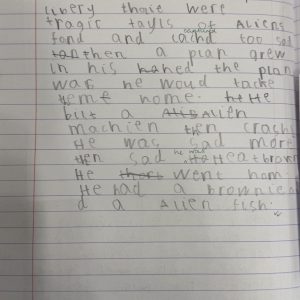 livery thaie were
tragic tayls of ALIENS
fond and cachd too sad
then a plan grew
in his haned the plan
was he woud tacke
theme home. He
bilt a Alien
machien then crash
He was sad more
then sad he was Heatbrown
He went hom.
He had a brownie
d a Alien fish.